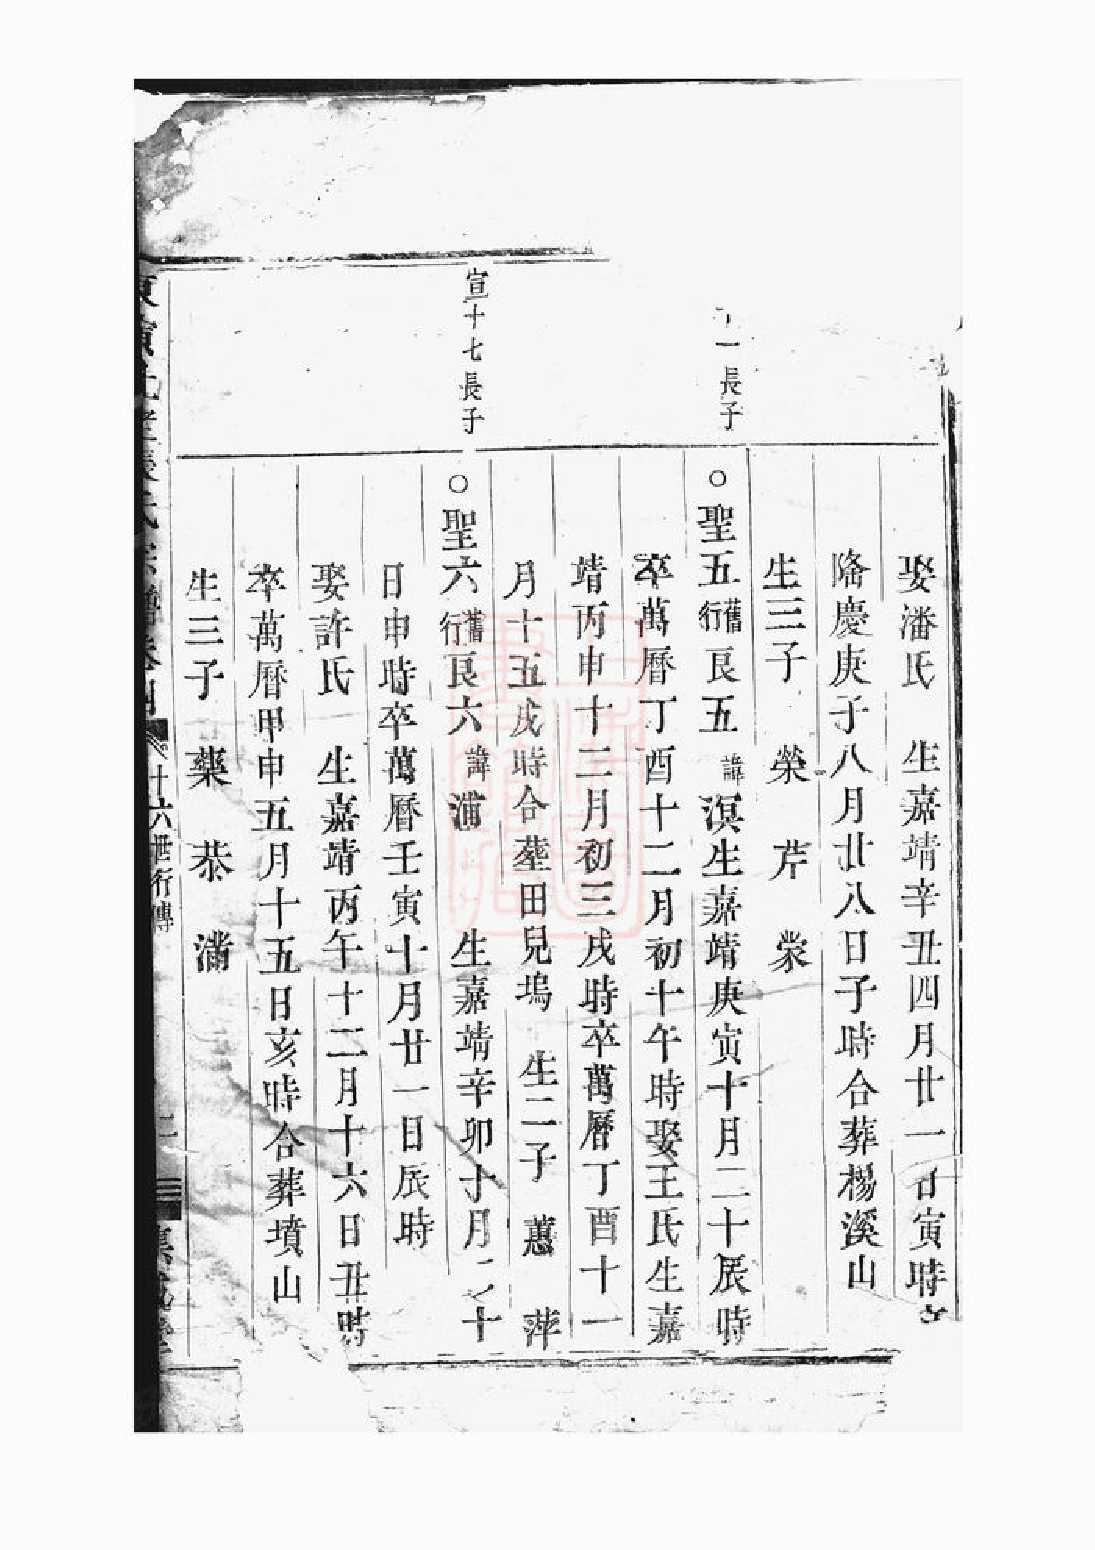 娶潘氏　生嘉靖辛丑四月廿一日寅時卒
隆慶庚子八月廿八日子時合葬楊溪山
生三子　榮　芹　棠
一長子
○聖五舊行良五諱溟生嘉靖庚寅十月二十辰時
卒萬曆丁酉十二月初十午時娶王氏生嘉
靖丙申十三月初三戌時卒萬曆丁酉十一
月十五戌時合塟田兒塢　生二子　蕙　萍
宣十七長子
○聖六舊行良六諱浦　生嘉靖辛卯十月二十
日申時卒萬曆壬寅十月廿一日辰時
娶許氏　生嘉靖丙午十二月十六日丑時
卒萬曆甲申五月十五日亥時合葬墳山
生三子　藥　恭　滿
氏宗譜卷四　十六世行傳　二　集